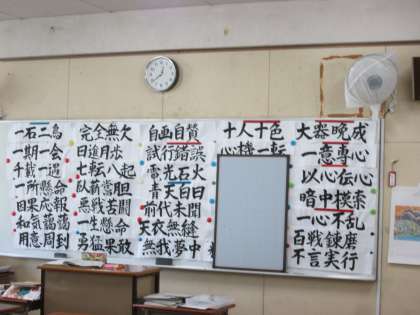 一石二鳥
一期一会
千載一遇
一所懸命
因果応報
和気藹藹
用意周到
完全無欠
日進月歩
七転八起
臥薪嘗胆
悪戦苦闘
一生懸命
勇猛果敢
自画自賛
試行錯誤
電光石火
青天白日
前代未聞
天衣無縫
無我夢中
十人十色
心機一転
大器晩成
一意専心
以心伝心
暗中模索
一心不乱
百戦錬磨
不言実行